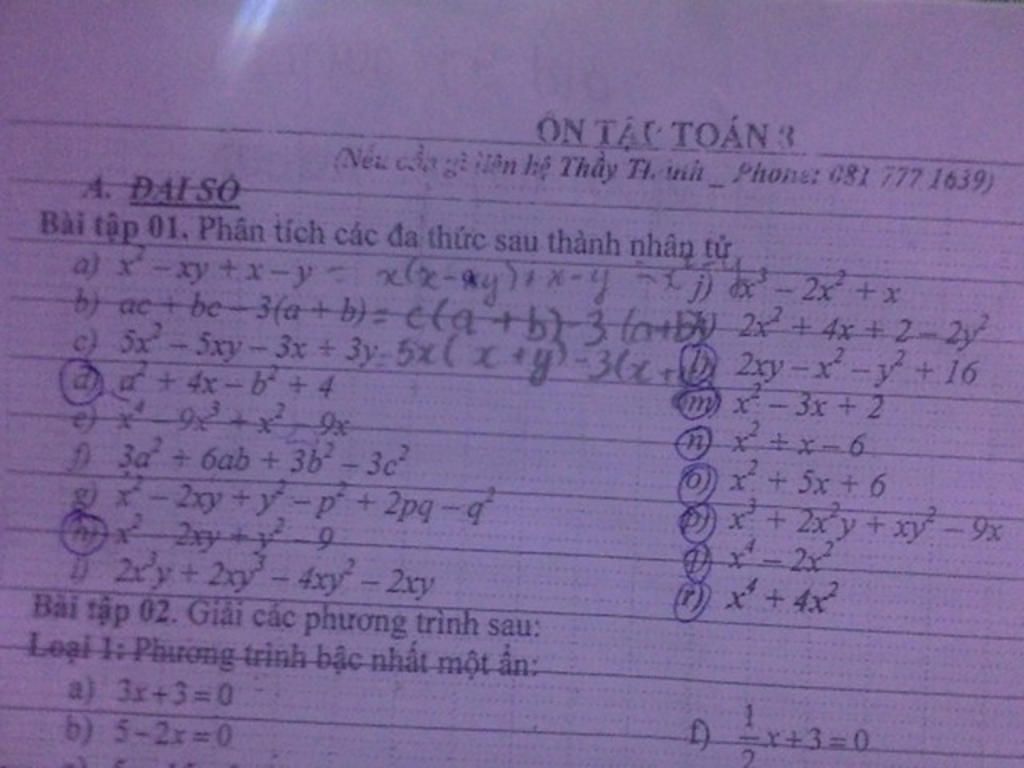 ÔN TẬP TOÁN 8
(Nếu cần gì liên hệ Thầy Thịnh _ Phone: 081 777 1639)
A. ĐẠI SỐ
Bài tập 01. Phân tích các đa thức sau thành nhân tử
a) x² – xy + x – y = x(x – xy) + x – y
b) ac + bc – 3(a + b) = c(a + b) – 3 (a+b)
c) 5x² – 5xy – 3x + 3y = 5x( x + y) – 3(x +
d) a² + 4x – b² + 4
e) x⁴ – 9x³ + x² – 9x
f) 3a² + 6ab + 3b² – 3c²
g) x² – 2xy + y² – p² + 2pq – q²
h) x² – 2xy + y² – 9
i) 2x³y + 2xy³ – 4xy² – 2xy
j) x³ – 2x² + x
2x² + 4x + 2 – 2y²
l) 2xy – x² – y² + 16
m) x² – 3x + 2
n) x² + x – 6
o) x² + 5x + 6
p) x³ + 2x²y + xy² – 9x
x⁴ – 2x²
r) x⁴ + 4x²
Bài tập 02. Giải các phương trình sau:
Loại 1: Phương trình bậc nhất một ẩn:
a) 3x + 3 = 0
b) 5 – 2x = 0
f) 1/2 x + 3 = 0